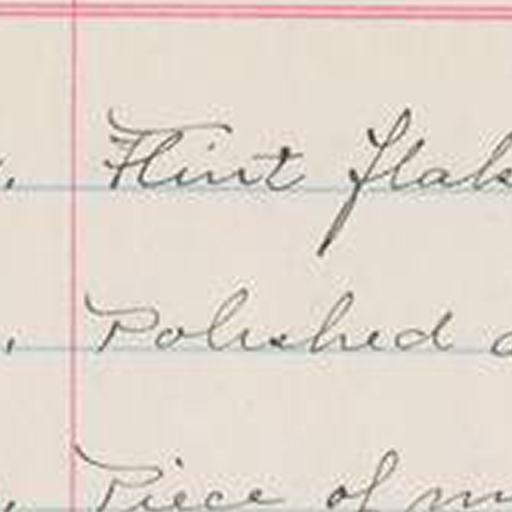 Flint flak
Polished
Piece of